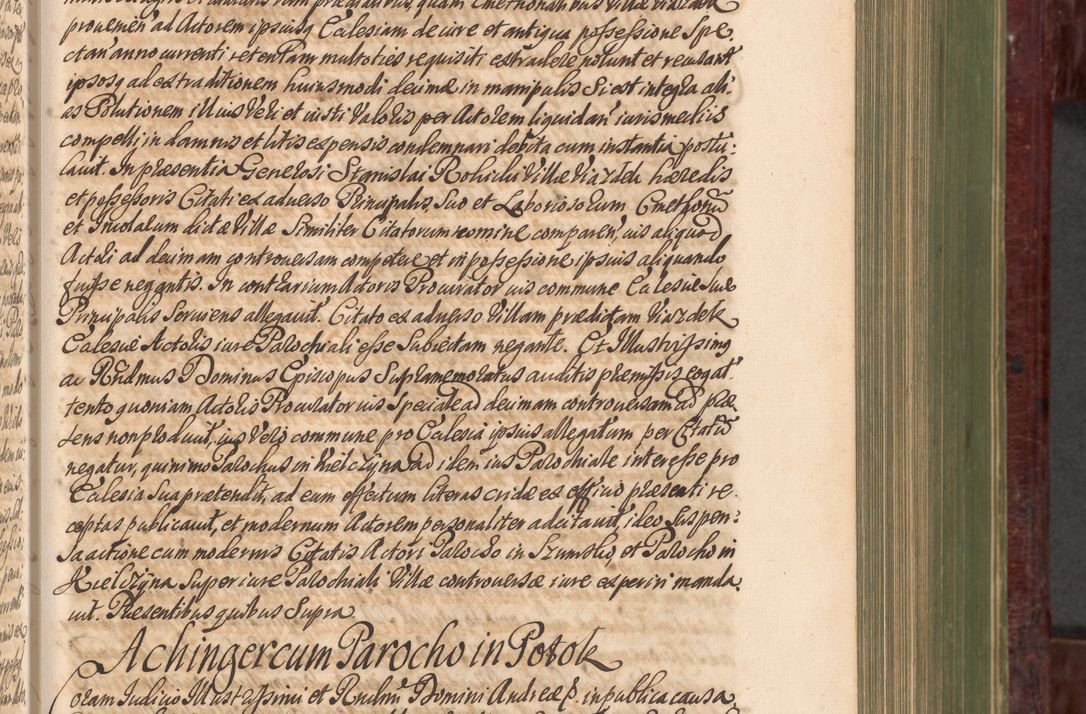 prouenien ad Actorem ipsiusq Ecclesiam de iure et antiqua possessione Spe
ctan anno currenti retentam multoties requisiti extradere nolunt et recusant
ipsosq ad extraditionem huiusmodi decimæ in manipulis si est integra ali:
as Solutionem illius Veri et iusti Valoris per Actorem liquidan iuris medijs
compelli, in damnis et litis expensis condemnari debita cum instantia postu:
lauit. In præsentia Generosi Stanislai Villæ Viazdek hæredis
et possessoris Citati ex aduerso Principalis, Suo et Laboriosorum Cmethonū
et Incolarum dictæ Villæ Similiter Citatorum nomine comparen, ius aliquod
Actori ad decimam controuersam competere et in possessione ipsius aliquando
fuisse negantis. In contrarium Actoris Procurator ius commune Ecclesiæ Suæ
Principalis Seruiens allegauit. Citato ex aduerso Villam prædictam Viazdek
Ecclesiæ Actoris iure Parochiali esse Subiectam negante. Et Illustrissimq
ac Rndmus Dominus Episcopus Supramemoratus auditis præmissis, cogat
tento quoniam Actoris Procurator ius Speciale ad decimam controuersam ad præ
sens non produxit, ius Vero commune pro Ecclesia ipsius allegatum per Citatū
negatur, quinimo Parochus in Kielczyna ad idem ius Parochiale interesse pro
Ecclesia Sua prætendit, ad eum effectum literas cridæ ex officio præsenti re
ceptas publicauit, et modernum Actorem personaliter adcitauit, ideo Suspen:
sa actione cum modernis Citatis Actori Parocho in Szumsko, et Parocho in
Kielczyna Super iure Parochiali Villæ controuersæ iure experiri manda
uit. Præsentibus quibus Supra
Achinger cum Parocho in Potok
Coram Iudicio Illustrissimi et Rndmi Domini Andreæ E. in publica causa